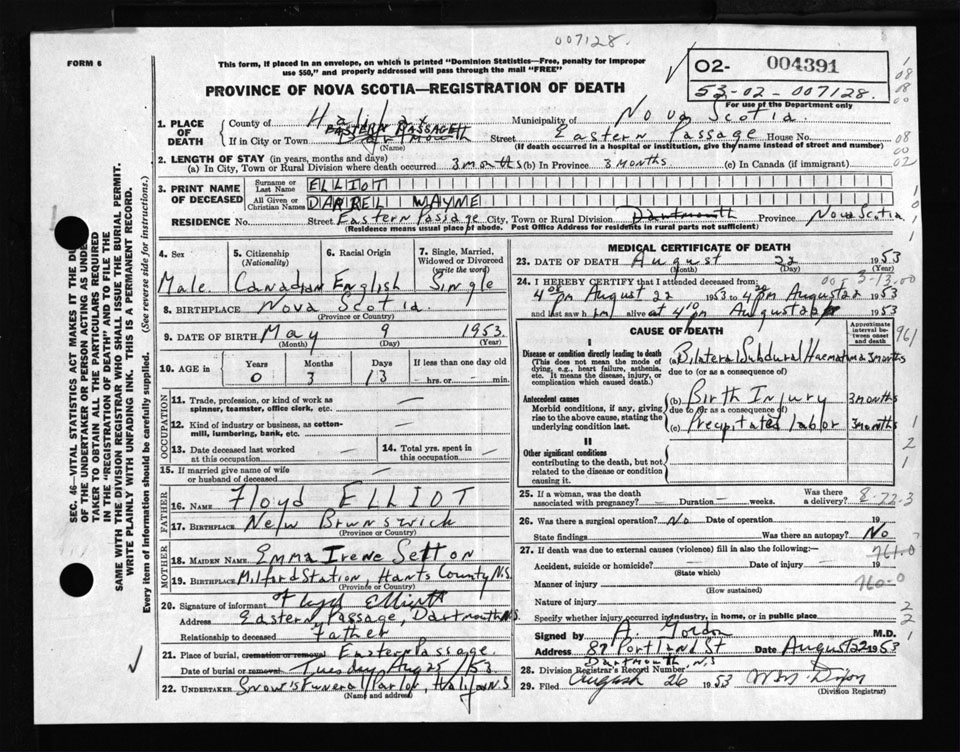 007128.
FORM 6
This form, if placed in an envelope, on which is printed "Dominion Statistics—Free, penalty for improper
use $50," and properly addressed will pass through the mail "FREE"
O2- 004391
53-02-007128.
For use of the Department only
PROVINCE OF NOVA SCOTIA—REGISTRATION OF DEATH
1. PLACE OF DEATH
County of Halifax Municipality of Nova Scotia.
If in City or Town EASTERN PASSAGE Dartmouth Street Eastern Passage House No.
(Name) (If death occurred in a hospital or institution, give the name instead of street and number)
2. LENGTH OF STAY (in years, months and days)
(a) In City, Town or Rural Division where death occurred 3 months (b) In Province 3 months. (c) In Canada (if immigrant)
3. PRINT NAME OF DECEASED
Surname or Last Name ELLIOT
All Given or Christian Names DARREL WAYNE
RESIDENCE No. Street Eastern Passage City, Town or Rural Division Dartmouth Province Nova Scotia
(Residence means usual place of abode. Post Office Address for residents in rural parts not sufficient)
4. Sex Male.
5. Citizenship (Nationality) Canadian
6. Racial Origin English
7. Single, Married, Widowed or Divorced (write the word) Single
8. BIRTHPLACE Nova Scotia.
(Province or Country)
9. DATE OF BIRTH May 9 1953.
(Month) (Day) (Year)
10. AGE IN Years 0 Months 3 Days 13 If less than one day old
hrs. or min.
OCCUPATION
11. Trade, profession, or kind of work as spinner, teamster, office clerk, etc. —
12. Kind of industry or business, as cotton-mill, lumbering, bank, etc. —
13. Date deceased last worked at this occupation —
14. Total yrs. spent in this occupation —
15. If married give name of wife or husband of deceased —
FATHER
16. NAME Floyd ELLIOT
17. BIRTHPLACE New Brunswick
(Province or Country)
MOTHER
18. MAIDEN NAME Emma Irene
19. BIRTHPLACE Milford Station, Hants County N.S.
(Province or Country)
20. Signature of informant Floyd Elliott
Address Eastern Passage, Dartmouth N.S.
Relationship to deceased Father
21. Place of burial, cremation or removal Eastern Passage.
Date of burial or removal Tuesday Aug 25/53.
22. UNDERTAKER Snow's Funeral Parlor, Halifax N.S
(Name and address)
MEDICAL CERTIFICATE OF DEATH
23. DATE OF DEATH August 22 1953
(Month) (Day) (Year)
24. I HEREBY CERTIFY that I attended deceased from:
4 pm August 22 1953 to 4 pm August 22 1953
and last saw h alive at 4 pm August 22 1953
CAUSE OF DEATH
Approximate interval between onset and death
I
Disease or condition directly leading to death
(This does not mean the mode of dying, e.g., heart failure, asthenia, etc. It means the disease, injury, or complication which caused death.)
(a) Bilateral Subdural Haematoma 3 months
due to (or as a consequence of)
Antecedent causes
Morbid conditions, if any, giving rise to the above cause, stating the underlying condition last.
(b) Birth Injury 3 months
due to (or as a consequence of)
(c) Precipitated labor 3 months
II
Other significant conditions
contributing to the death, but not related to the disease or condition causing it.
25. If a woman, was the death associated with pregnancy? — Duration — weeks. Was there a delivery?
26. Was there a surgical operation? No Date of operation 19
State findings Was there an autopsy? No
27. If death was due to external causes (violence) fill in also the following:—
Accident, suicide or homicide? — Date of injury — 19
(State which)
Manner of injury
(How sustained)
Nature of injury
Specify whether injury occurred in industry, in home, or in public place
Signed by A. Gordon M.D.
Address 87 Portland St Date August 22 1953
Dartmouth, N.S
28. Division Registrar's Record Number
29. Filed August 26 1953
(Division Registrar)
SEC. 46—VITAL STATISTICS ACT MAKES IT THE
OF THE UNDERTAKER OR PERSON ACTING AS
TAKER TO OBTAIN ALL THE PARTICULARS REQUIRED
IN THE "REGISTRATION OF DEATH" AND TO FILE THE
SAME WITH THE DIVISION REGISTRAR WHO SHALL ISSUE THE BURIAL PERMIT.
WRITE PLAINLY WITH UNFADING INK. THIS IS A PERMANENT RECORD.
Every item of information should be carefully supplied. (See reverse side for instructions.)